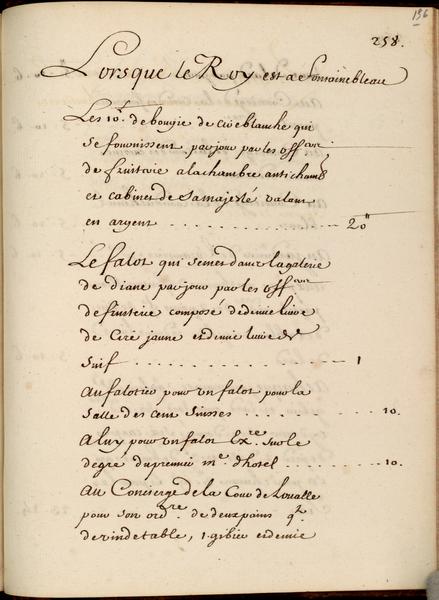 156
258.
Lorsque le Roy est a Fontainebleau
Les 10l. de bougie de cire blanche qui
se fournissent par jour par les off.ers
de fruiterie a la chambre antichamb
et cabinet de sa majesté valant
en argent . . . . . . . . . . . . 20"
Le falot qui se met dans la galerie
de diane par jour par les off.ers
de fruiterie composé de demie livre
de Cire jaune et demie livre de
Suif . . . . . . . . . . . . 1
Au falotier pour un falot pour la
Salle des cent Suisses . . . . . . . . 10.
A luy pour un falot sur le
degré du premier me. d'hotel . . . . . . . . 10.
Au Concierge de la Cour de
pour son ordre. de deux pains qt.
de vin de table, 1. gibier et demie